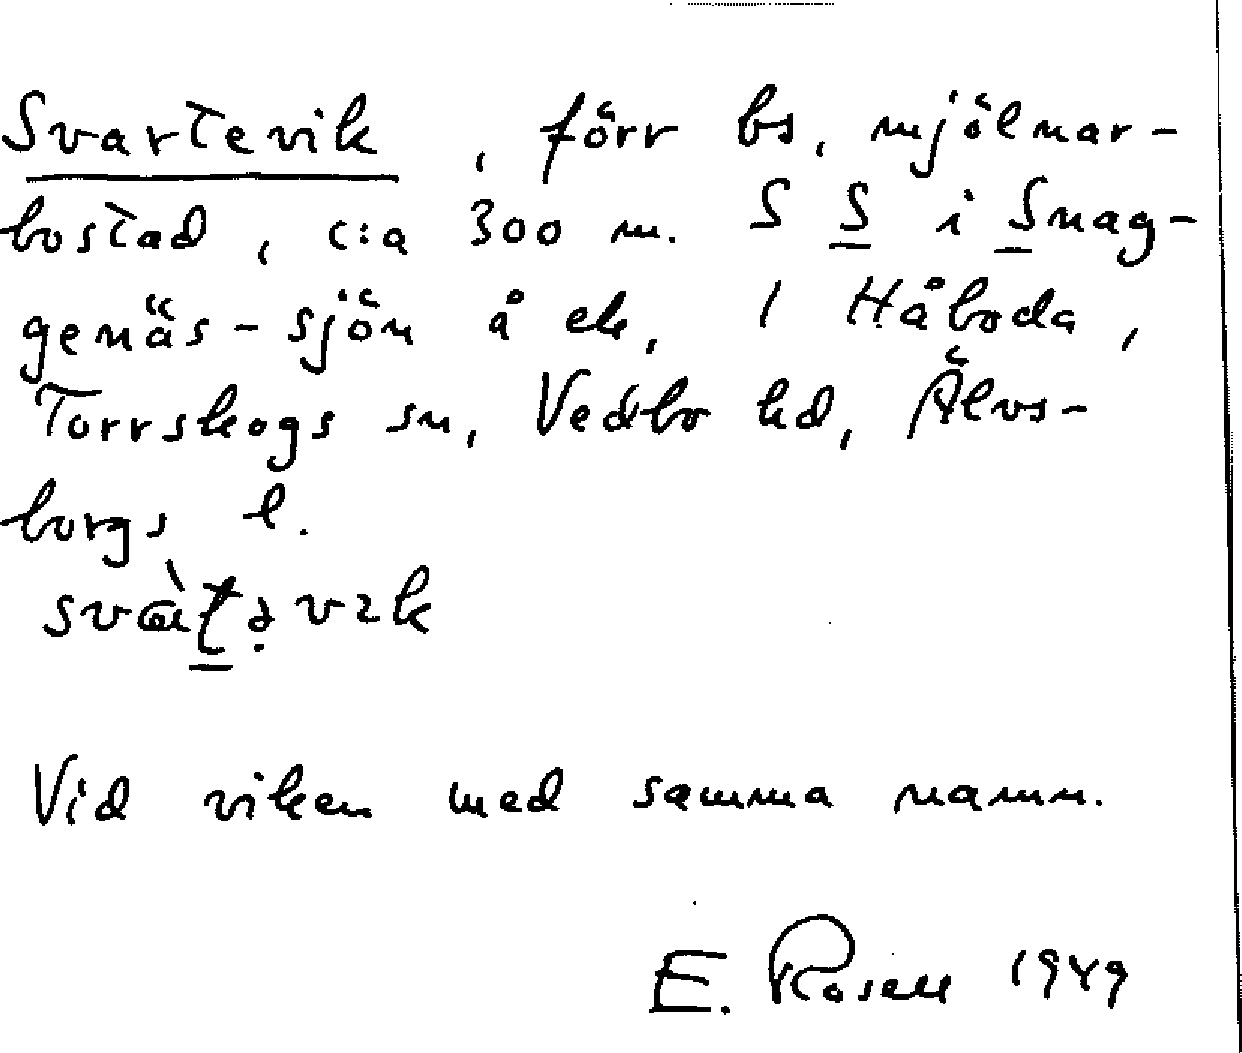 Svartevik, förr bs, mjölnar-
bostad, c:a 300 m. S S i Snag-
genäs-sjön å ek, 1 Håboda,
Torrskogs sn, Vedbo hd, Älvs-
borgs l.
Vid viken med samma namn.
E. Rosell 1949